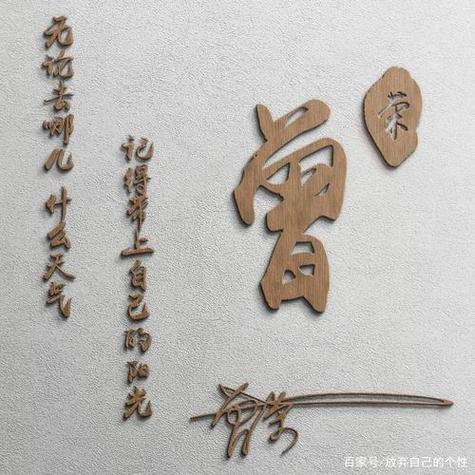 无论去哪儿 什么天气
记得带上自己的阳光
曾
荣
曾荣
百家号/放弃自己的个性